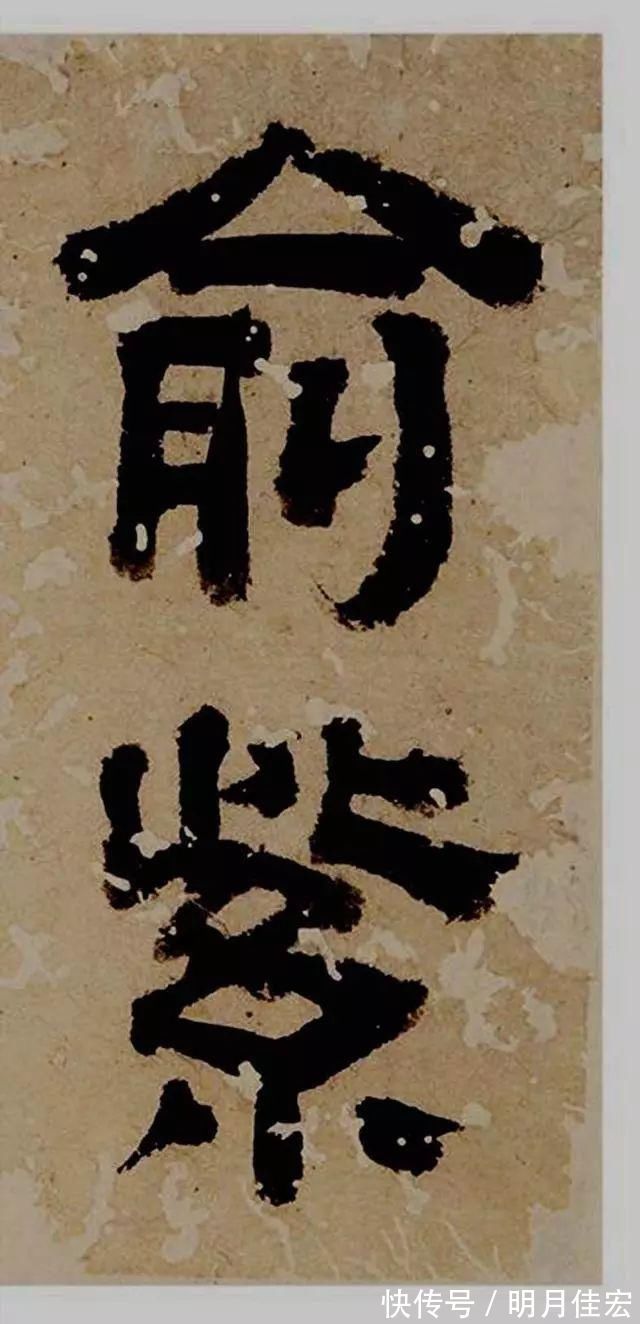 俞
紫
快传号/明月佳宏